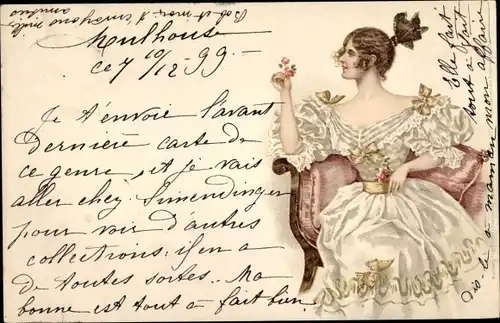 Bob et moi, t'envoyons mille
amitiés
Mulhouse
ce 7 10/12 - 99 -
Je t'envoie l'avant
dernière carte de
ce genre, et je vais
aller chez Simendinger
pour voir d'autres
collections: il en a
de toutes sortes.. Ma
bonne est tout à fait bien.
Elle fait
tout à fait
mon affaire
dis-le à maman